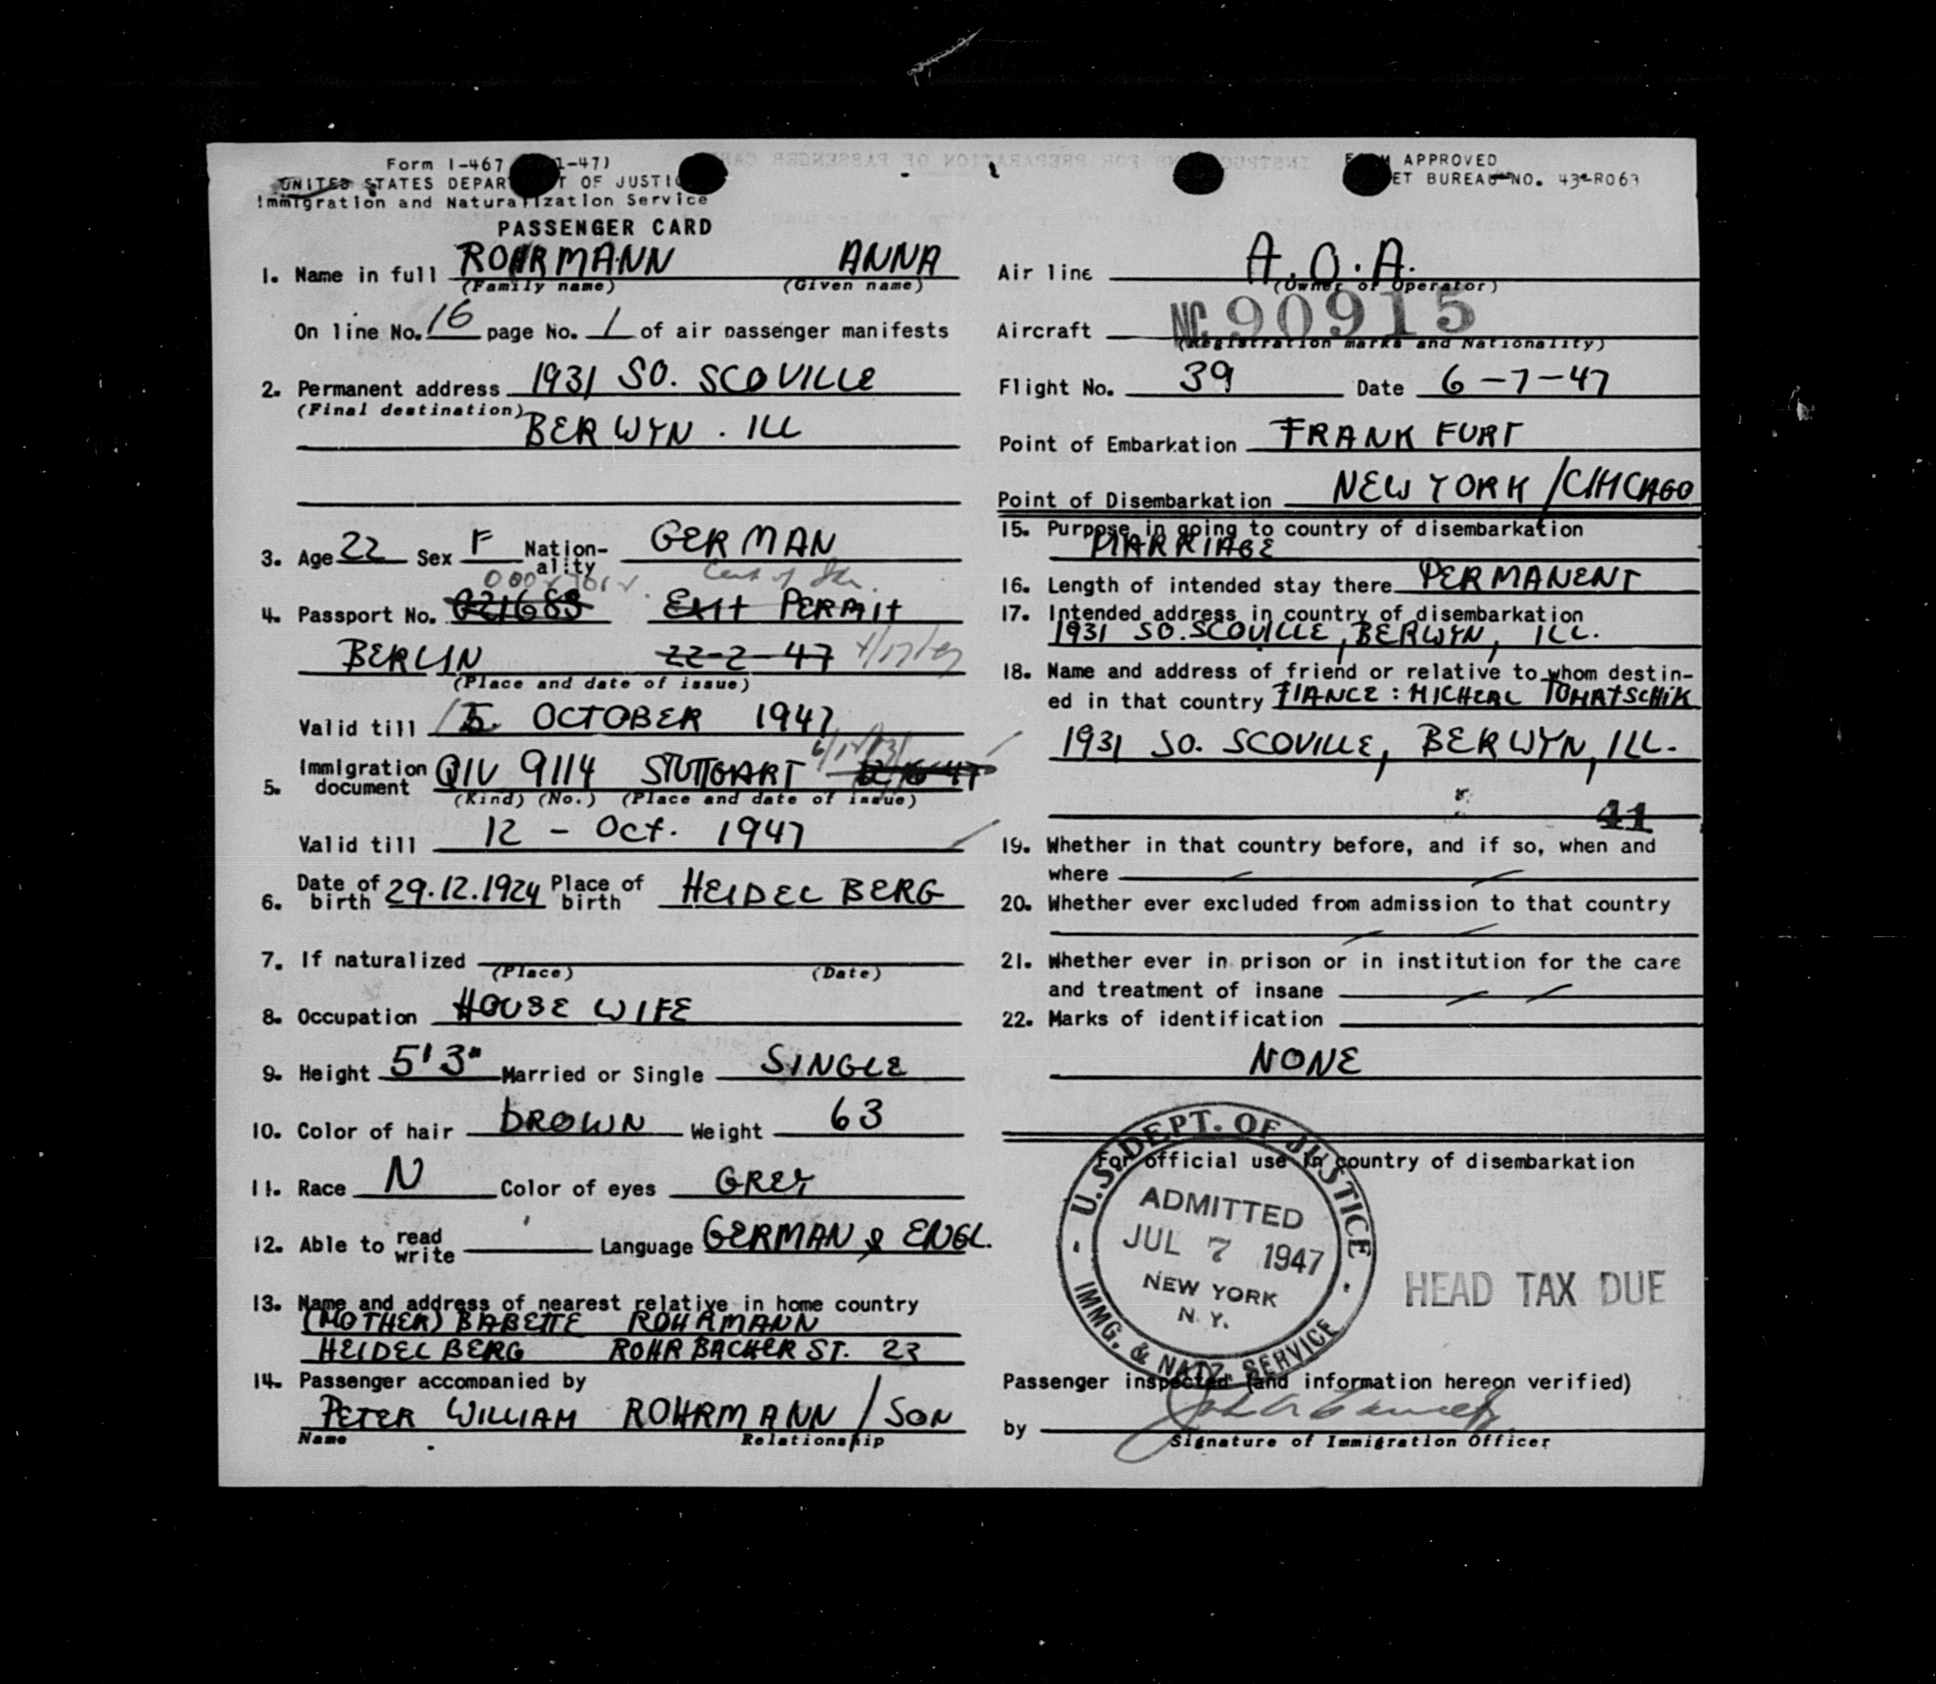 Form I-467 1-47)
UNITED STATES DEPAR T OF JUSTIC
Immigration and Naturalization Service
PASSENGER CARD
1. Name in full ROHRMANN ANNA
(Family name) (Given name)
On line No. 16 page No. 1 of air passenger manifests
2. Permanent address 1931 SO. SCOVILLE
(Final destination)
BERWYN. ILL
3. Age 22 Sex F Nation-
ality GERMAN
4. Passport No. 021683 EXIT PERMIT
BERLIN 22-2-47
(Place and date of issue)
Valid till 15 OCTOBER 1947
5. Immigration
document QIV 9114 STUTTGART
(Kind) (No.) (Place and date of issue)
Valid till 12 - Oct. 1947
6. Date of
birth 29.12.1924 Place of
birth HEIDELBERG
7. If naturalized
(Place) (Date)
8. Occupation HOUSE WIFE
9. Height 5'3" Married or Single SINGLE
10. Color of hair BROWN Weight 63
11. Race N Color of eyes GREY
12. Able to read
write Language GERMAN & ENGL.
13. Name and address of nearest relative in home country
(MOTHER) BABETTE ROHRMANN
HEIDELBERG ROHRBACHER ST. 23
14. Passenger accompanied by
PETER WILLIAM ROHRMANN / SON
Name Relationship
FORM APPROVED
ET BUREAU NO. 43-R063
Air line A.O.A.
(Owner or Operator)
Aircraft NC 90915
(Registration marks and Nationality)
Flight No. 39 Date 6-7-47
Point of Embarkation FRANKFURT
Point of Disembarkation NEW YORK / CHICAGO
15. Purpose in going to country of disembarkation
MARRIAGE
16. Length of intended stay there PERMANENT
17. Intended address in country of disembarkation
1931 SO. SCOVILLE, BERWYN, ILL.
18. Name and address of friend or relative to whom destin-
ed in that country FIANCE: MICHEAL TOMATSCHIK
1931 SO. SCOVILLE, BERWYN, ILL.
41
19. Whether in that country before, and if so, when and
where
20. Whether ever excluded from admission to that country
21. Whether ever in prison or in institution for the care
and treatment of insane
22. Marks of identification
NONE
For official use in country of disembarkation
U.S. DEPT. OF JUSTICE
ADMITTED
JUL 7 1947
NEW YORK
N.Y.
IMMG. & NATZ. SERVICE
HEAD TAX DUE
Passenger inspected (and information hereon verified)
by
Signature of Immigration Officer